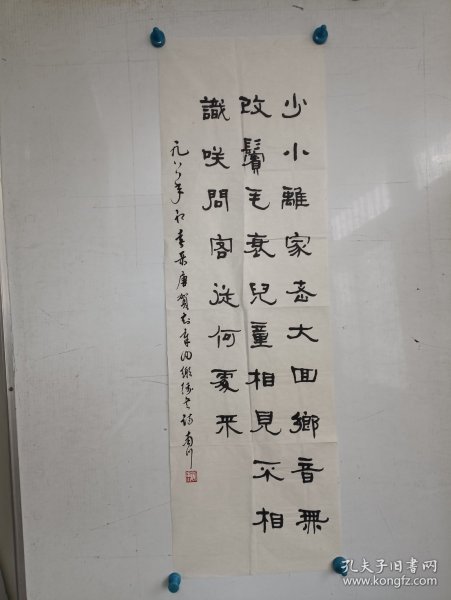 少小離家老大回鄉音無
改鬢毛衰兒童相見不相
識咲問客從何處来
年初唐賀知章回鄉偶書詩
孔夫子旧书网
www.kongfz.com